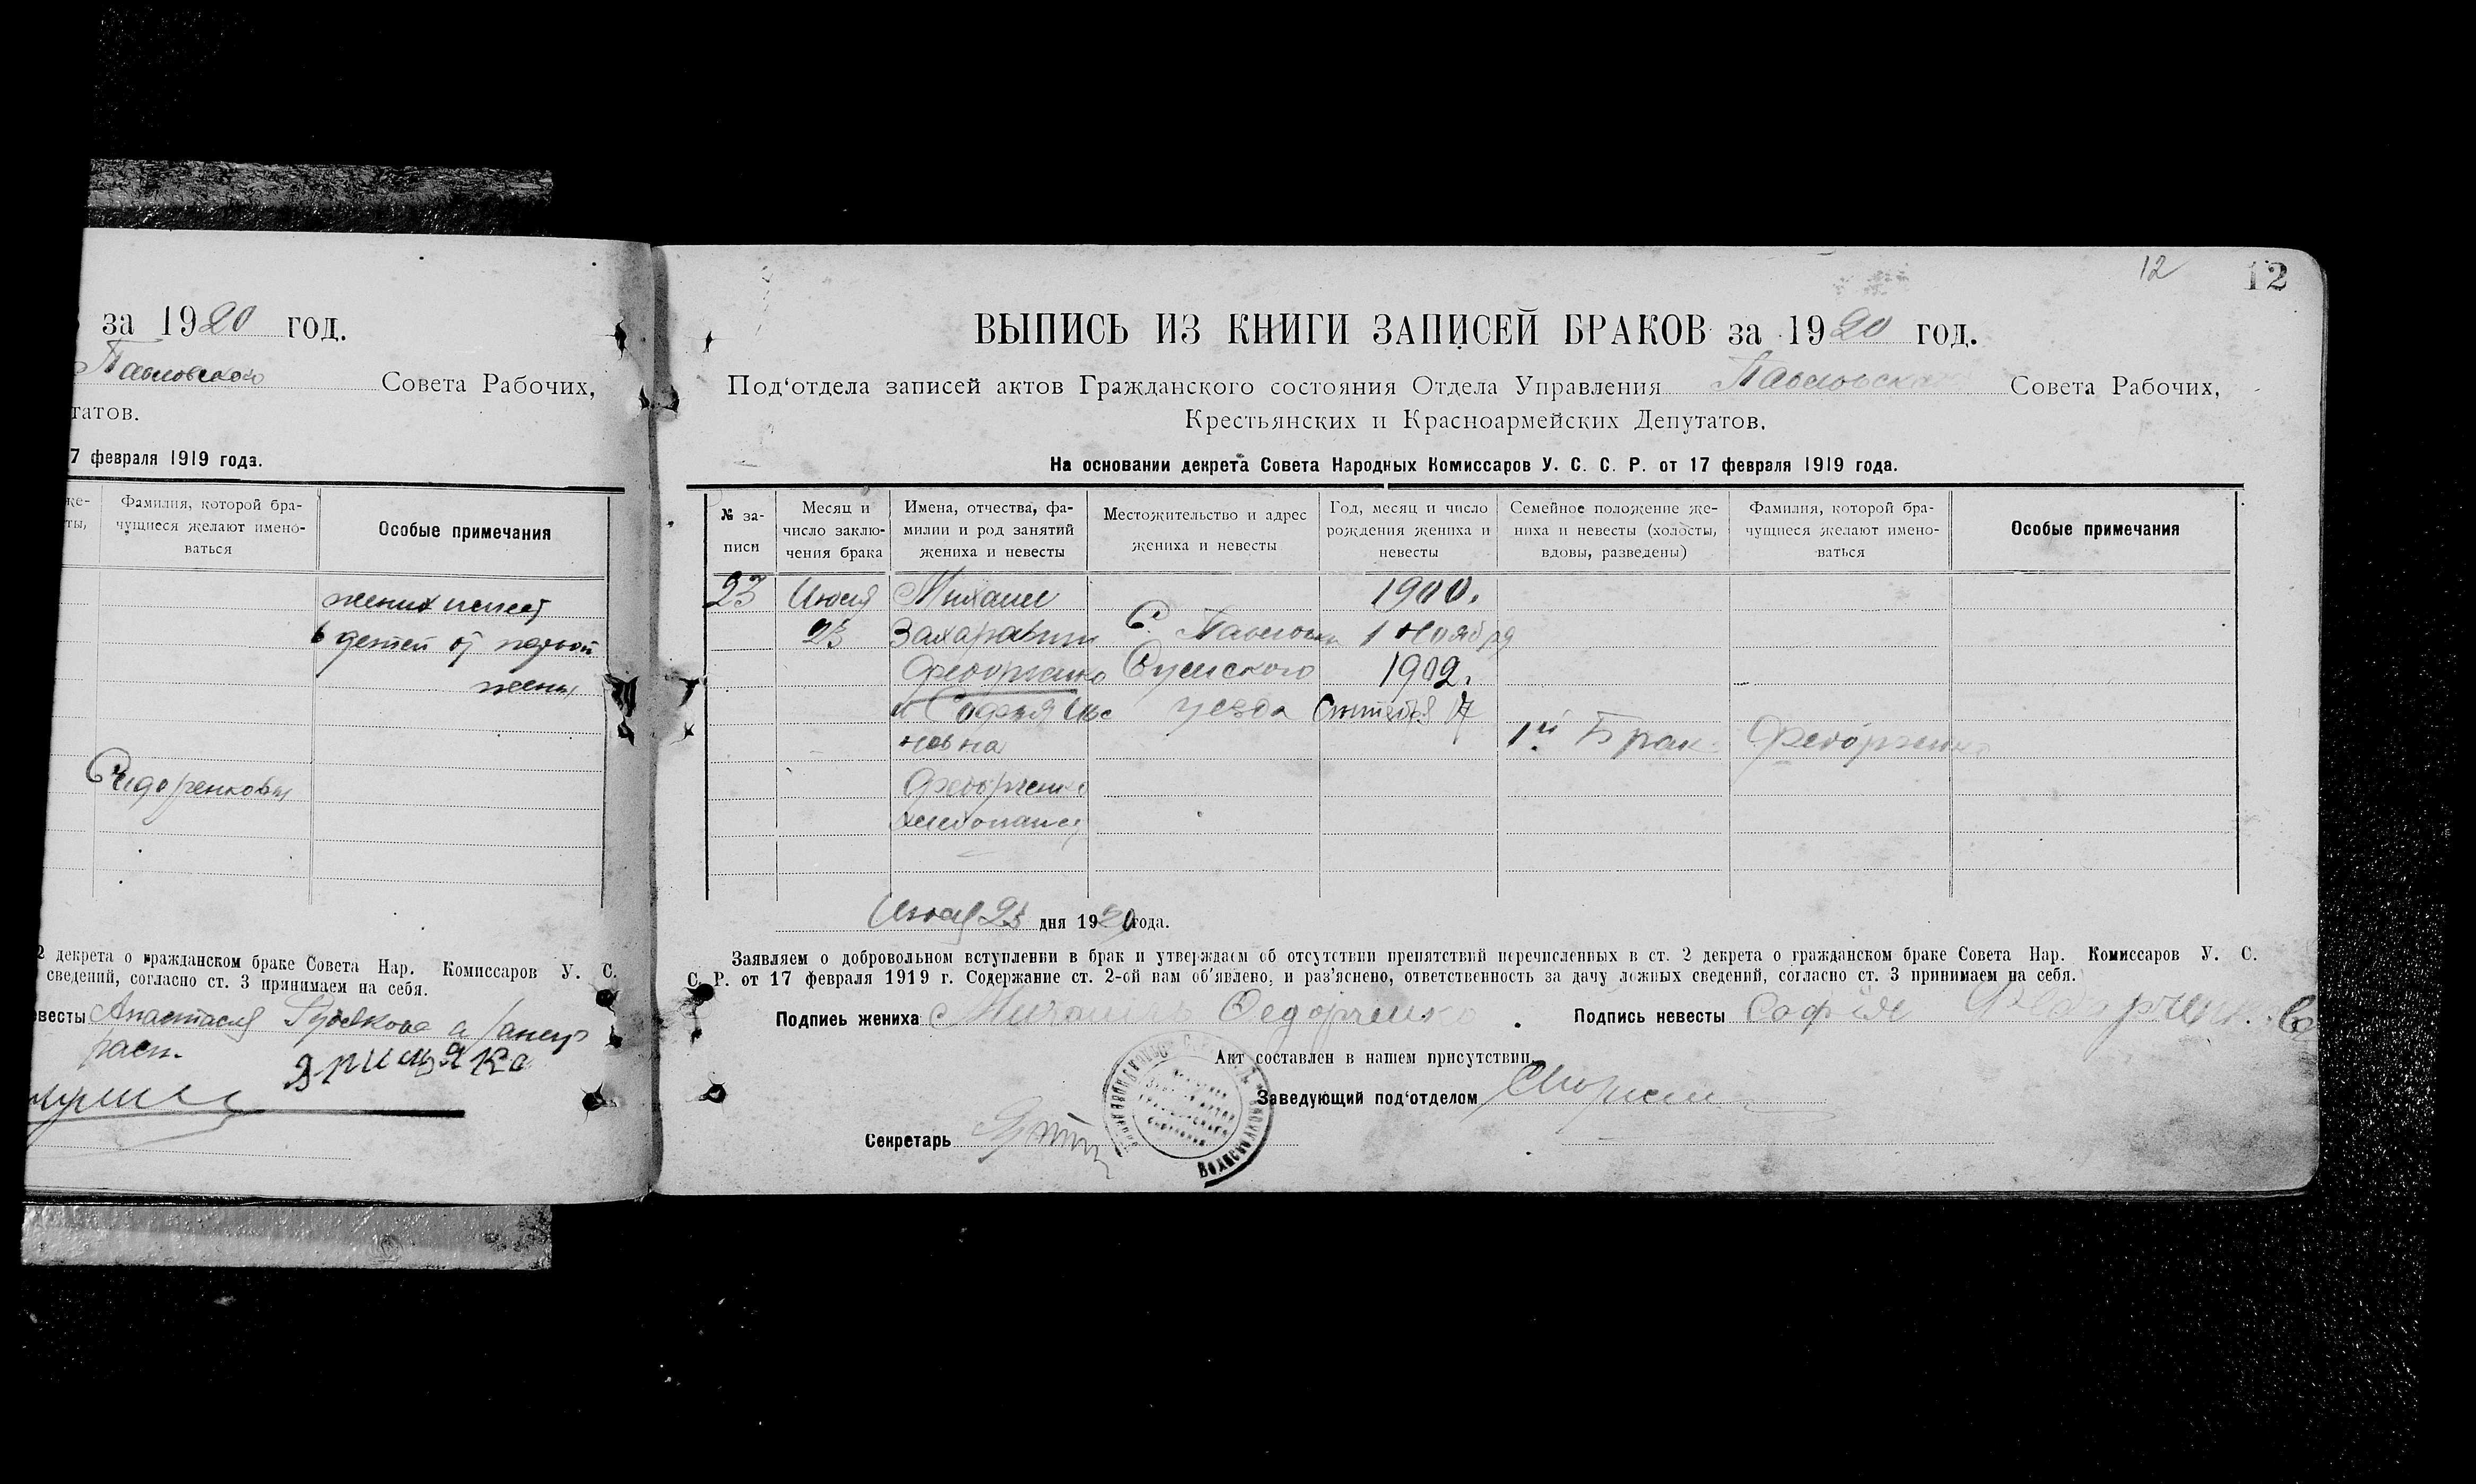 за 1920 год.
Павловского Совета Рабочих,
татов.
7 февраля 1919 года.
же-
ты,
Фамилия, которой бра-
чущиеся желают имено-
ваться
Особые примечания
жених имеет
6 детей от первой
жены
Сидоренковы
2 декрета о гражданском браке Совета Нар. Комиссаров У. С.
сведений, согласно ст. 3 принимаем на себя.
весты Анастасия
12
12
ВЫПИСЬ ИЗ КНИГИ ЗАПИСЕЙ БРАКОВ за 1920 год.
Под‘отдела записей актов Гражданского состояния Отдела Управления Павловского Совета Рабочих,
Крестьянских и Красноармейских Депутатов.
На основании декрета Совета Народных Комиссаров У. С. С. Р. от 17 февраля 1919 года.
№ за-
писи
Месяц и
число заклю-
чения брака
Имена, отчества, фа-
милии и род занятий
жениха и невесты
Местожительство и адрес
жениха и невесты
Год, месяц и число
рождения жениха и
невесты
Семейное положение же-
ниха и невесты (холосты,
вдовы, разведены)
Фамилия, которой бра-
чущиеся желают имено-
ваться
Особые примечания
23 Июня Михаил 1900.
23 Захарович С. Павловки 1 ноября
Федорченко Сумского 1902.
и София Ива уезда Сентября 17
новна 1й Брак Федорченко
Федорченко
хлебопашец
23 дня 1920 года.
Заявляем о добровольном вступлении в брак и утверждаем об отсутствии препятствий перечисленных в ст. 2 декрета о гражданском браке Совета Нар. Комиссаров У. С.
С. Р. от 17 февраля 1919 г. Содержание ст. 2-ой нам об‘явлено, и раз‘яснено, ответственность за дачу ложных сведений, согласно ст. 3 принимаем на себя.
Подпись жениха Михаил Федорченко Подпись невесты София Федорченкова
Акт составлен в нашем присутствии.
Заведующий под‘отделом
Секретарь